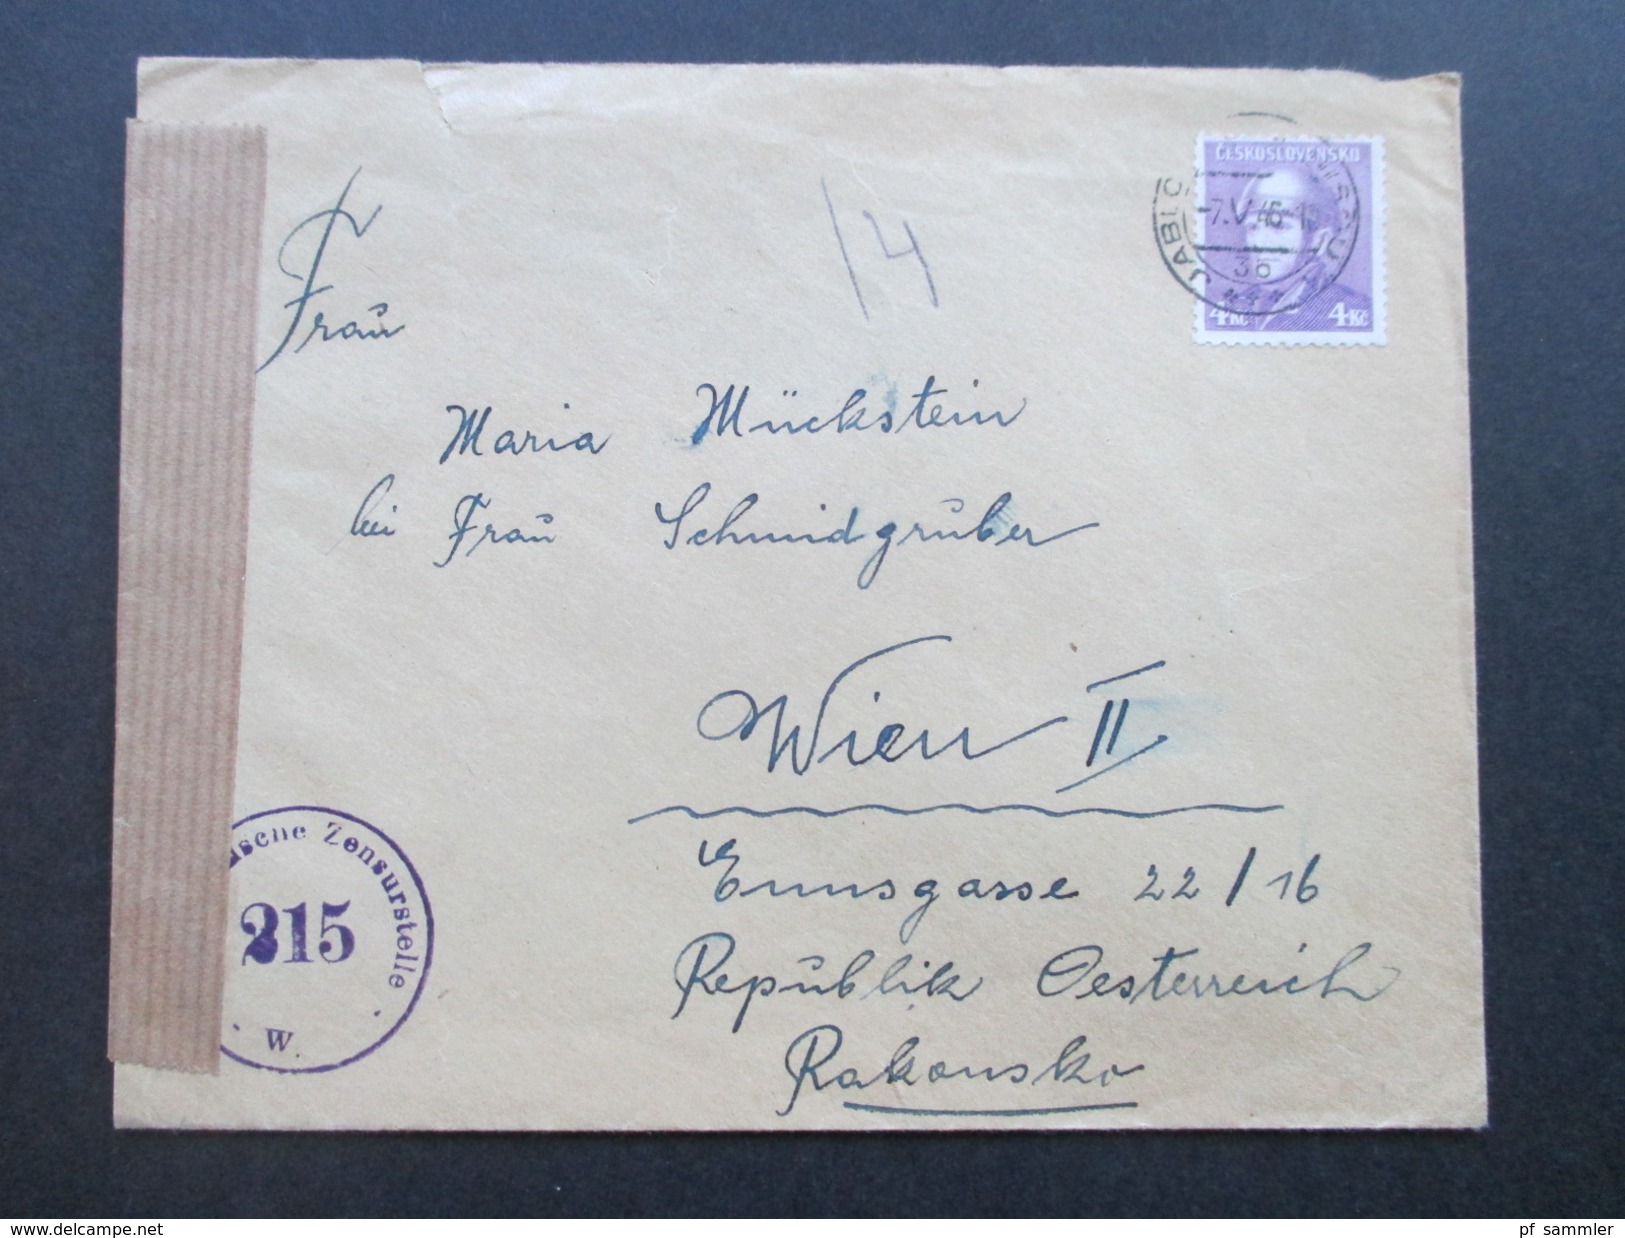 ČESKOSLOVENSKO
-7.V.46-18
JABLO
3b
4Kč 4Kč
14
Frau
Maria Mückstein
bei Frau Schmidgruber
Wien II
Ennsgasse 22/16
Republik Oesterreich
Rakousko
Zensurstelle
215
W.
www.delcampe.net
pf_sammler